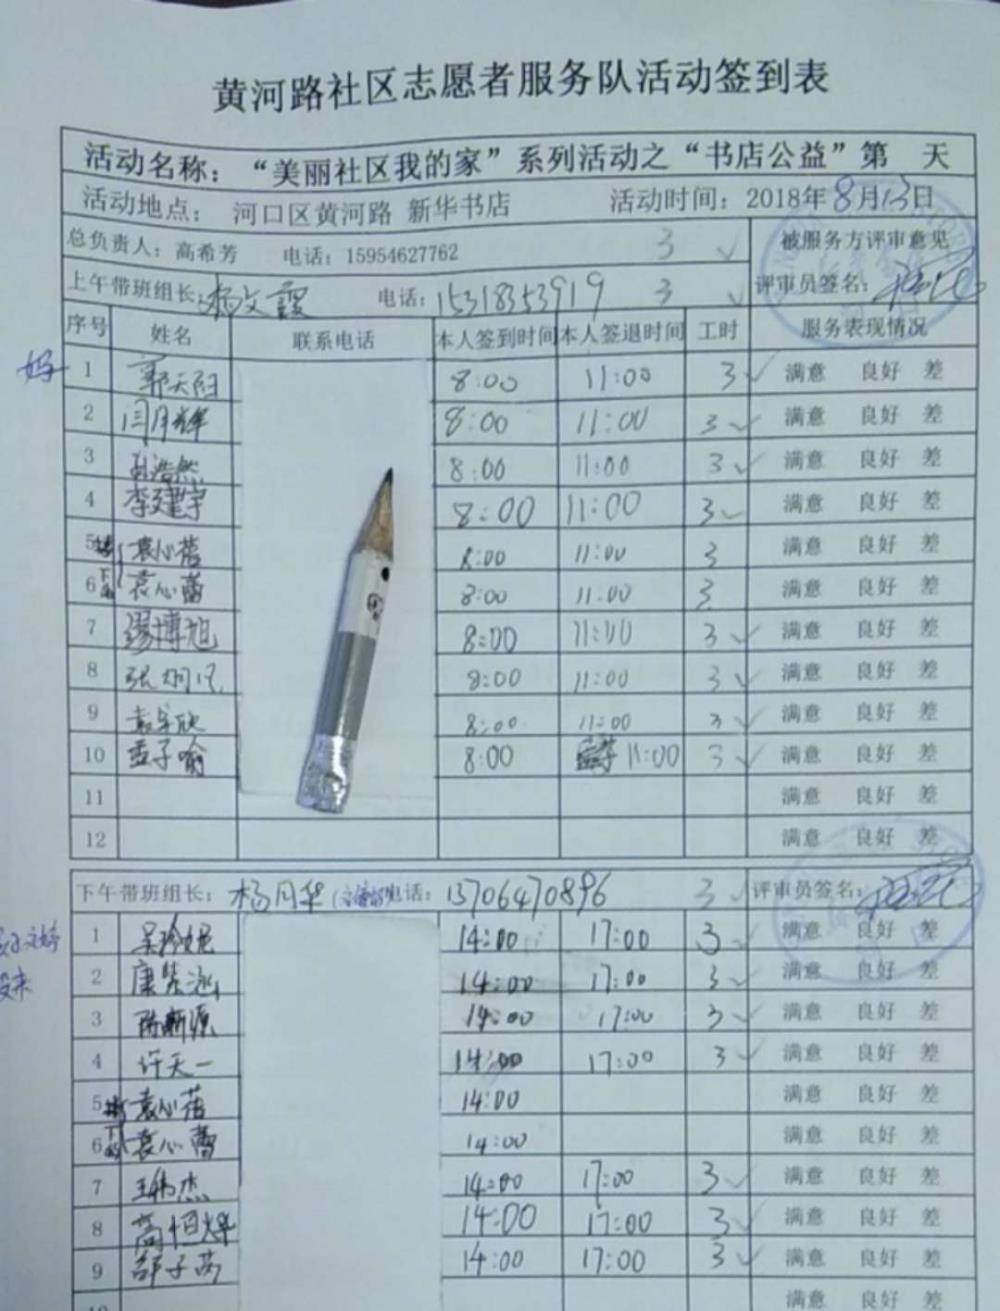 黄河路社区志愿者服务队活动签到表
活动名称：“美丽社区我的家”系列活动之“书店公益”第 天
活动地点： 河口区黄河路 新华书店 活动时间：2018年8月13日
总负责人：高希芳 电话：15954627762 3 被服务方评审意见
上午带班组长：杨文霞 电话：15318353919 3 评审员签名：
序号 姓名 联系电话 本人签到时间 本人签退时间 工时 服务表现情况
1 郭天阳 8:00 11:00 3 满意 良好 差
2 闫月辉 8:00 11:00 3 满意 良好 差
3 浩然 8:00 11:00 3 满意 良好 差
4 李建宇 8:00 11:00 3 满意 良好 差
5 袁心蓓 8:00 11:00 3 满意 良好 差
6 袁心蕾 8:00 11:00 3 满意 良好 差
7 博旭 8:00 11:00 3 满意 良好 差
8 张 8:00 11:00 3 满意 良好 差
9 欣 8:00 11:00 3 满意 良好 差
10 孟子喻 8:00 11:00 3 满意 良好 差
11 满意 良好 差
12 满意 良好 差
下午带班组长：杨月华 电话：13706470896 3 评审员签名：
1 吴玲妮 14:00 17:00 3 满意 良好 差
2 康 14:00 17:00 3 满意 良好 差
3 陈新源 14:00 17:00 3 满意 良好 差
4 许天一 14:00 17:00 3 满意 良好 差
5 袁心蓓 14:00 满意 良好 差
6 袁心蕾 14:00 满意 良好 差
7 王伟杰 14:00 17:00 3 满意 良好 差
8 高恒烨 14:00 17:00 3 满意 良好 差
9 邵子芮 14:00 17:00 3 满意 良好 差
满意 良好 差